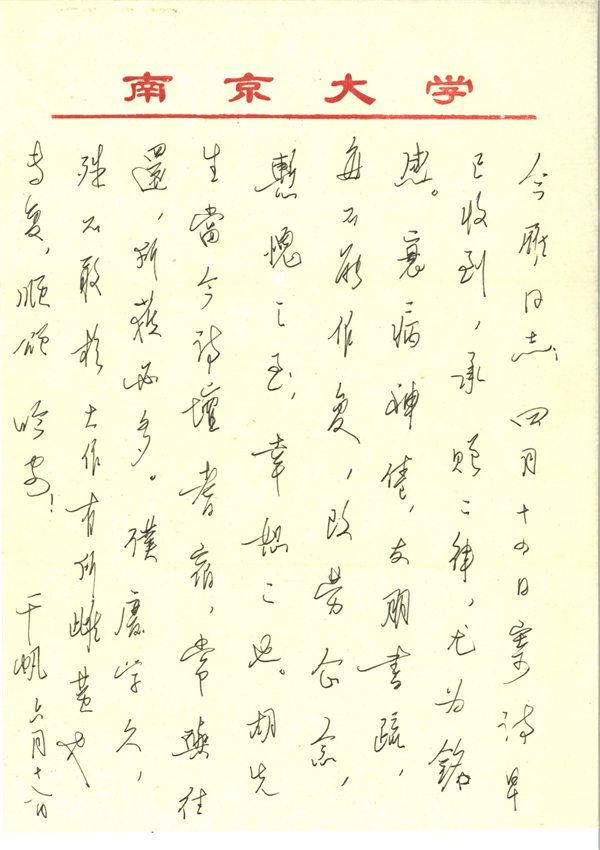 南京大学
今雁同志：四月十四日寄诗早
已收到，承赠二律，尤为铭
感。衰病神倦，友朋书疏，
每不能作复，致劳合念，
惭愧之至，幸恕之也。胡先
生當今诗壇耆宿，常與往
還，所获必多。僕废学久，
殊不敢於大作有所雌黄也
专复，顺颂 吟安！
千帆 六月十八日